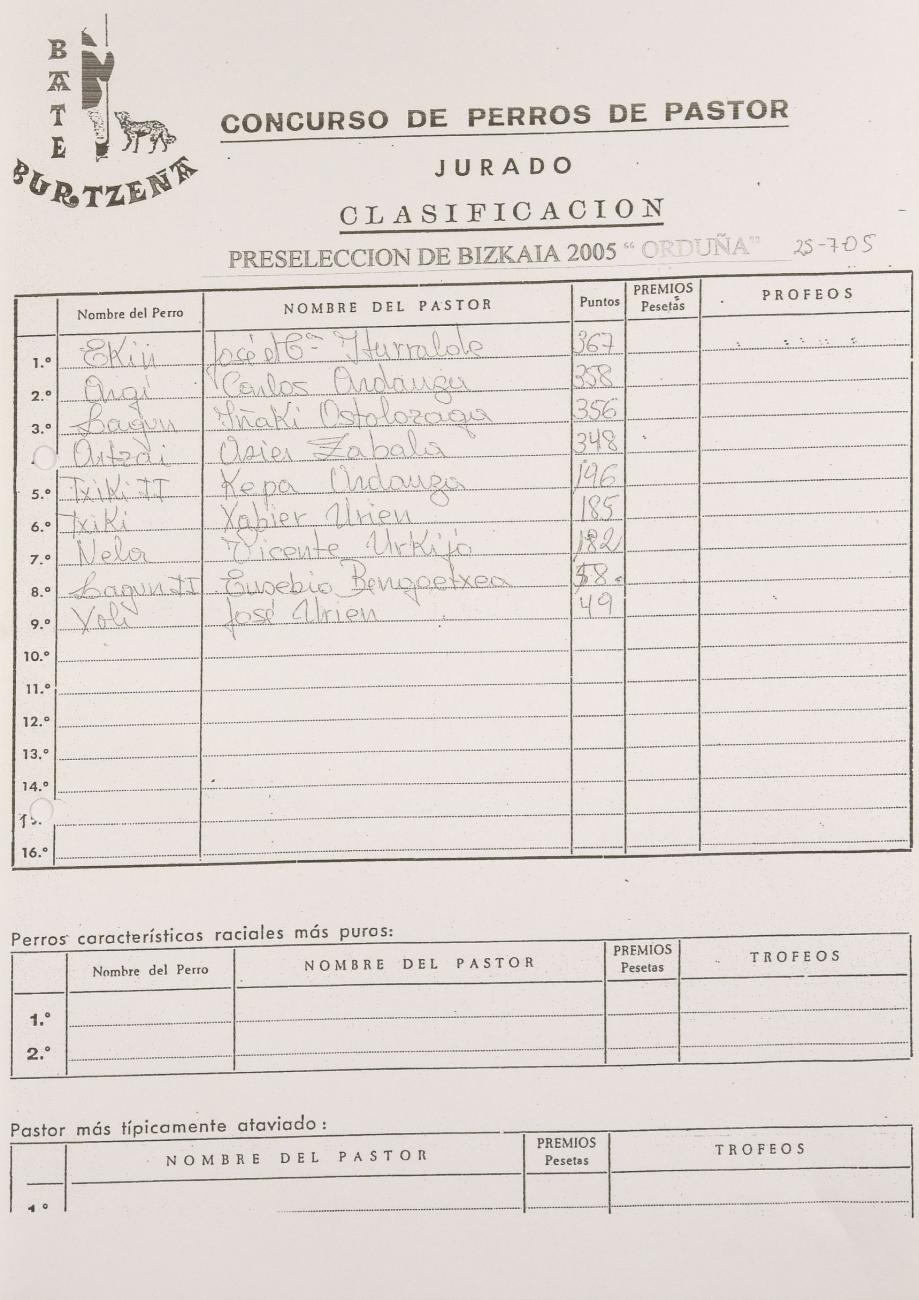 BATE
BURTZEÑA
CONCURSO DE PERROS DE PASTOR
JURADO
CLASIFICACION
PRESELECCION DE BIZKAIA 2005 "ORDUÑA" 25-7-05
Nombre del Perro NOMBRE DEL PASTOR Puntos PREMIOS Pesetas PROFEOS
1.º Ekiñ José Mª Iturralde 367
2.º Argi Carlos Ardanza 358
3.º Lagun Iñaki Ostolozaga 356
Artzai Asier Zabala 348
5.º Txiki II Kepa Ardanza 196
6.º Txiki Xabier Urien 185
7.º Nela Vicente Urkijo 182
8.º Lagun II Eusebio Bengoetxea 58.
9.º Yoli José Urien 49
10.º
11.º
12.º
13.º
14.º
15.
16.º
Perros características raciales más puras:
Nombre del Perro NOMBRE DEL PASTOR PREMIOS Pesetas TROFEOS
1.º
2.º
Pastor más típicamente ataviado:
NOMBRE DEL PASTOR PREMIOS Pesetas TROFEOS
1.º